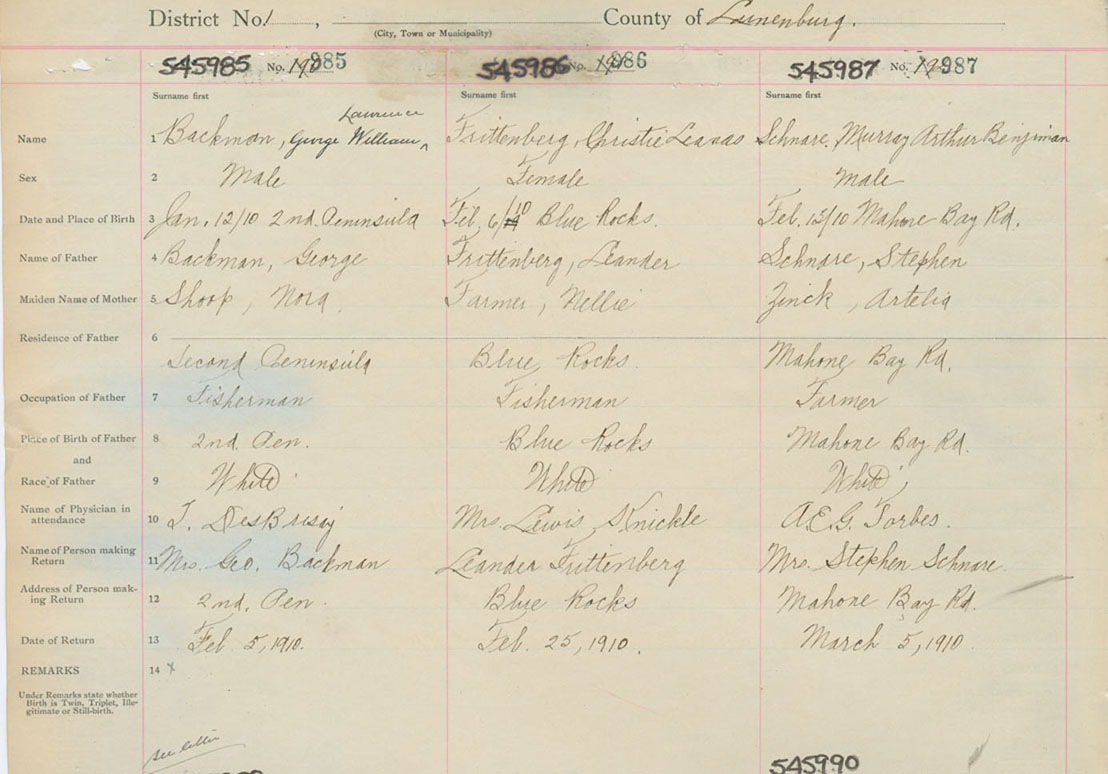 District No. 1 , County of Lunenburg.
(City, Town or Municipality)
545985 No. 985 545986 No. 986 545987 No. 987
Surname first Surname first Surname first
Lawrence
Name 1 Backman, George William Frittenberg, Christie Leasas Schnare, Murray Arthur Benjiman
Sex 2 Male Female Male
Date and Place of Birth 3 Jan. 12/10 2nd. Peninsula Feb, 6/10 Blue Rocks. Feb. 15/10 Mahone Bay Rd.
Name of Father 4 Backman, George Frittenberg, Leander Schnare, Stephen
Maiden Name of Mother 5 Shoop, Nora Farmer, Nellie Zinck, Artelia
Residence of Father 6
Second Peninsula Blue Rocks. Mahone Bay Rd.
Occupation of Father 7 Fisherman Fisherman Farmer
Place of Birth of Father 8 2nd. Pen. Blue Rocks Mahone Bay Rd.
and
Race of Father 9 White White White
Name of Physician in
attendance 10 J. DesBrisay Mrs. Lewis Knickle A.E.G. Forbes.
Name of Person making
Return 11 Mrs. Geo. Backman Leander Frittenberg Mrs. Stephen Schnare.
Address of Person mak-
ing Return 12 2nd. Pen. Blue Rocks Mahone Bay Rd.
Date of Return 13 Feb. 5, 1910. Feb. 25, 1910. March 5, 1910
REMARKS 14 x
Under Remarks state whether
Birth is Twin, Triplet, Ille-
gitimate or Still-birth.
see letter
545990